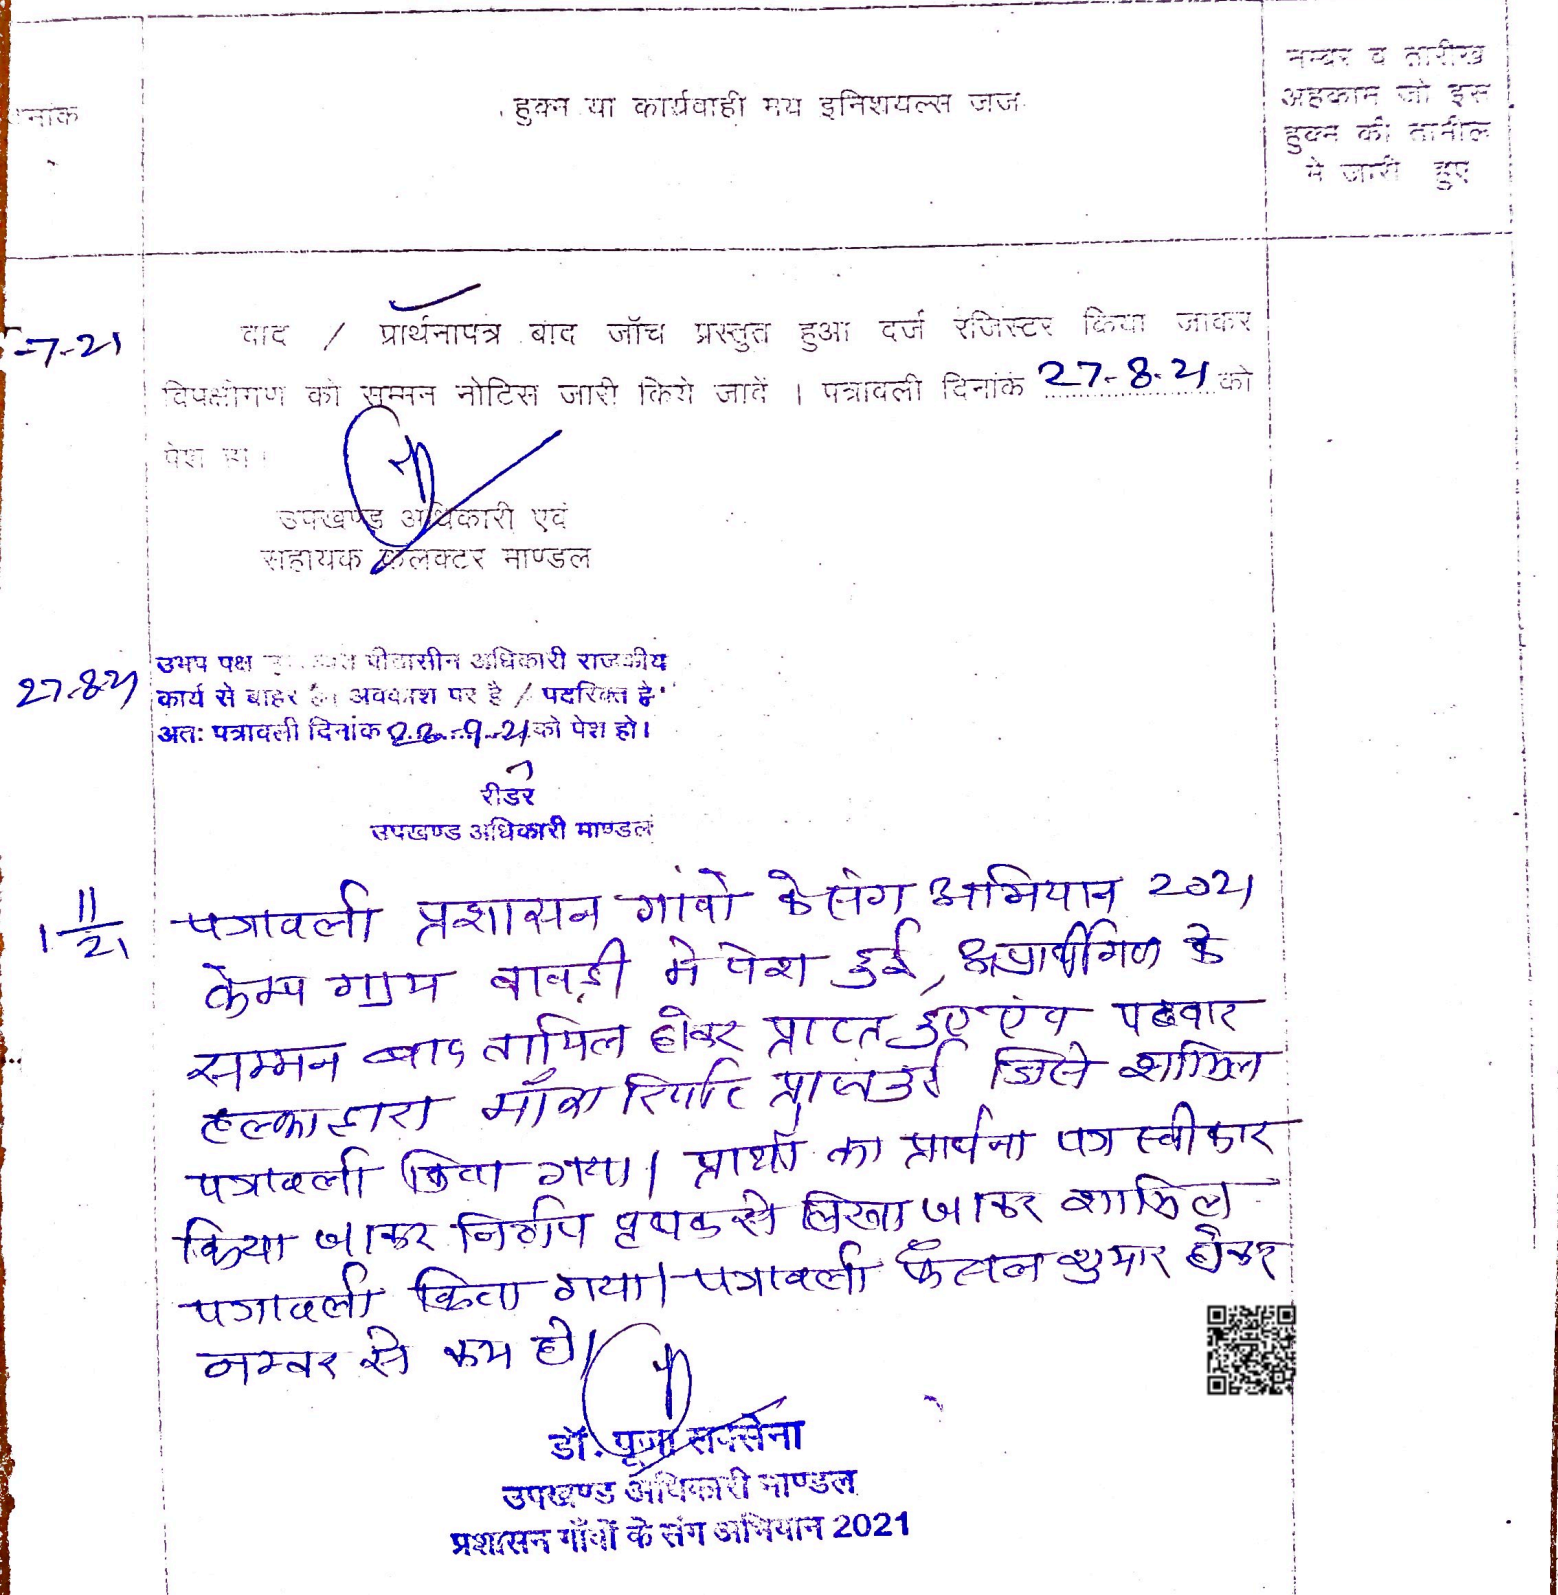 नांक
हुक्म या कार्यवाही मय इनिशयल्स जज
नम्बर व तारीख
अहकाम जो इस
हुक्म की तामील
मे जारी हुए
-7-21
वाद / प्रार्थनापत्र बाद जॉच प्रस्तुत हुआ दर्ज रजिस्टर किया जाकर
विपक्षीगण को सम्मन नोटिस जारी किये जावें । पत्रावली दिनांक 27-8-21 को
पेश हो ।
उपखण्ड अधिकारी एवं
सहायक कलक्टर माण्डल
27-8-21
उभय पक्ष पीठासीन अधिकारी राजकीय
कार्य से बाहर है। अवकाश पर है / पदरिक्त है
अतः पत्रावली दिनांक 22-9-21 को पेश हो।
रीडर
उपखण्ड अधिकारी माण्डल
1 11/21
पत्रावली प्रशासन गांवो के संग अभियान 2021
केम्प ग्राम बावड़ी मे पेश हुई, अप्रार्थीगण के
सम्मन बाद तामिल होकर प्राप्त हुए एंव पटवार
हल्का द्वारा मौका रिपोर्ट प्राप्त हुई जिसे शामिल
पत्रावली किया गया। प्रार्थी का प्रार्थना पत्र स्वीकार
किया जाकर निर्णय पृथक से लिखा जाकर शामिल
पत्रावली किया गया। पत्रावली फैसल शुमार होकर
नम्बर से कम हो।
डॉ. पूजा सक्सेना
उपखण्ड अधिकारी माण्डल
प्रशासन गाँवों के संग अभियान 2021